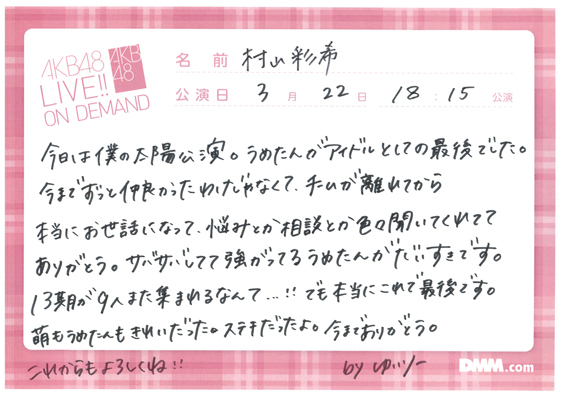 AKB48
LIVE!!
ON DEMAND
AKB
48
名前 村山彩希
公演日 3月22日 18:15公演
今日は僕の太陽公演。うめたんがアイドルとしての最後でした。
今までずっと仲良かったわけじゃなくて、チームが離れてから
本当にお世話になって、悩みとか相談とか色々聞いてくれてて
ありがとう。サバサバしてて強がってるうめたんがだいすきです。
13期が9人また集まれるなんて...!! でも本当にこれで最後です。
萌もうめたんもきれいだった。ステキだったよ。今までありがとう。
これからもよろしくね!!
by ゆいりー
DMM.com